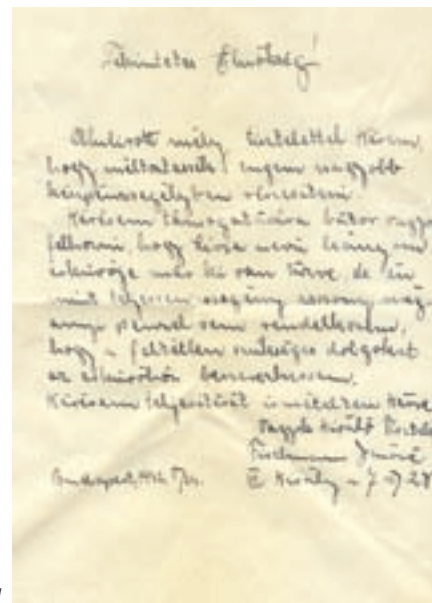 Tekintetes Elnökség!
Alulirott mély tisztelettel kérem,
hogy méltóztassék engem nagyobb
készpénzsegélyben részesíteni.
Kérésem támogatására bátor vagyo
felhozni, hogy nevü leányom
esküvője már ki van tűzve, de én
mint teljesen szegény asszony, még
annyi pénzzel sem rendelkezem,
hogy a feltétlen szükséges dolgokat
az esküvőhöz beszerezhessem.
Kérésem teljesítését is mélyen kérve
vagyok kiváló tisztele
Jenőné
Budapest, Király u.